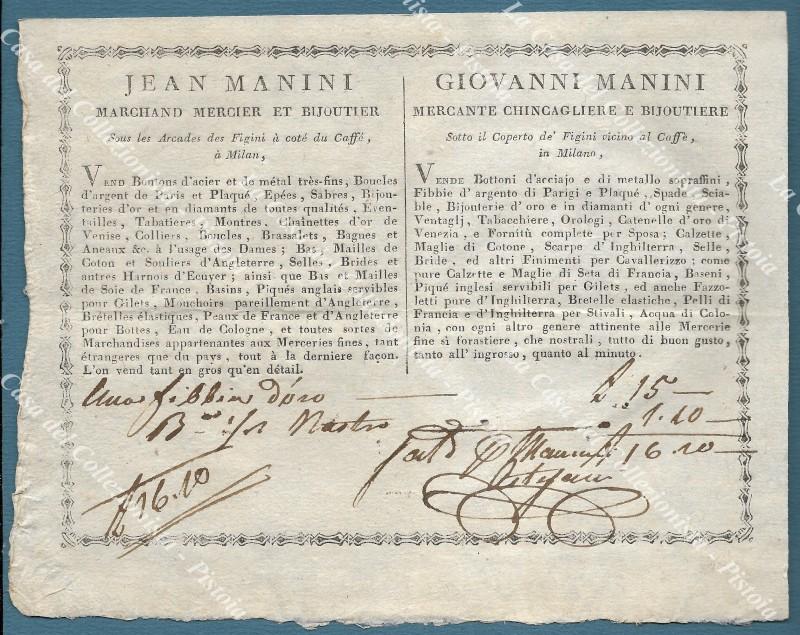 JEAN MANINI
MARCHAND MERCIER ET BIJOUTIER
Sous les Arcades des Figini à coté du Caffé,
à Milan,
VEND Boutons d'acier et de métal très-fins, Boucles
d'argent de Paris et Plaqué, Epées, Sabres, Bijou-
teries d'or et en diamants de toutes qualités, Even-
tailles, Tabatières, Montres, Chainettes d'or de
Venise, Colliers, Boucles, Brassalets, Bagues et
Aneaux &c. à l'usage des Dames; Bas, Mailles de
Coton et Souliers d'Angleterre, Selles, Brides et
autres Harnois d'Ecuyer; ainsi que Bas et Mailles
de Soie de France, Basins, Piqués anglais servibles
pour Gilets, Mouchoirs pareillement d'Angleterre,
Brételles élastiques, Peaux de France et d'Angleterre
pour Bottes, Eau de Cologne, et toutes sortes de
Marchandises appartenantes aux Merceries fines, tant
étrangeres que du pays, tout à la derniere façon.
L'on vend tant en gros qu'en détail.
GIOVANNI MANINI
MERCANTE CHINCAGLIERE E BIJOUTIERE
Sotto il Coperto de' Figini vicino al Caffè,
in Milano,
VENDE Bottoni d'acciajo e di metallo sopraffini,
Fibbie d'argento di Parigi e Plaqué, Spade, Scia-
ble, Bijouterie d'oro e in diamanti d'ogni genere,
Ventaglj, Tabacchiere, Orologi, Catenelle d'oro di
Venezia, e Fornitù complete per Sposa; Calzette,
Maglie di Cotone, Scarpe d'Inghilterra, Selle,
Bride, ed altri Finimenti per Cavallerizzo; come
pure Calzette e Maglie di Seta di Francia, Baseni,
Piqué inglesi servibili per Gilets, ed anche Fazzo-
letti pure d'Inghilterra, Bretelle elastiche, Pelli di
Francia e d'Inghilterra per Stivali, Acqua di Colo-
nia, con ogni altro genere attinente alle Mercerie
fine sì forastiere, che nostrali, tutto di buon gusto,
tanto all'ingrosso, quanto al minuto.
Una fibbia d'oro £ 15
Nastro 1.10
16.10
£ 16.10
La Casa del Collezionista - Pistoia